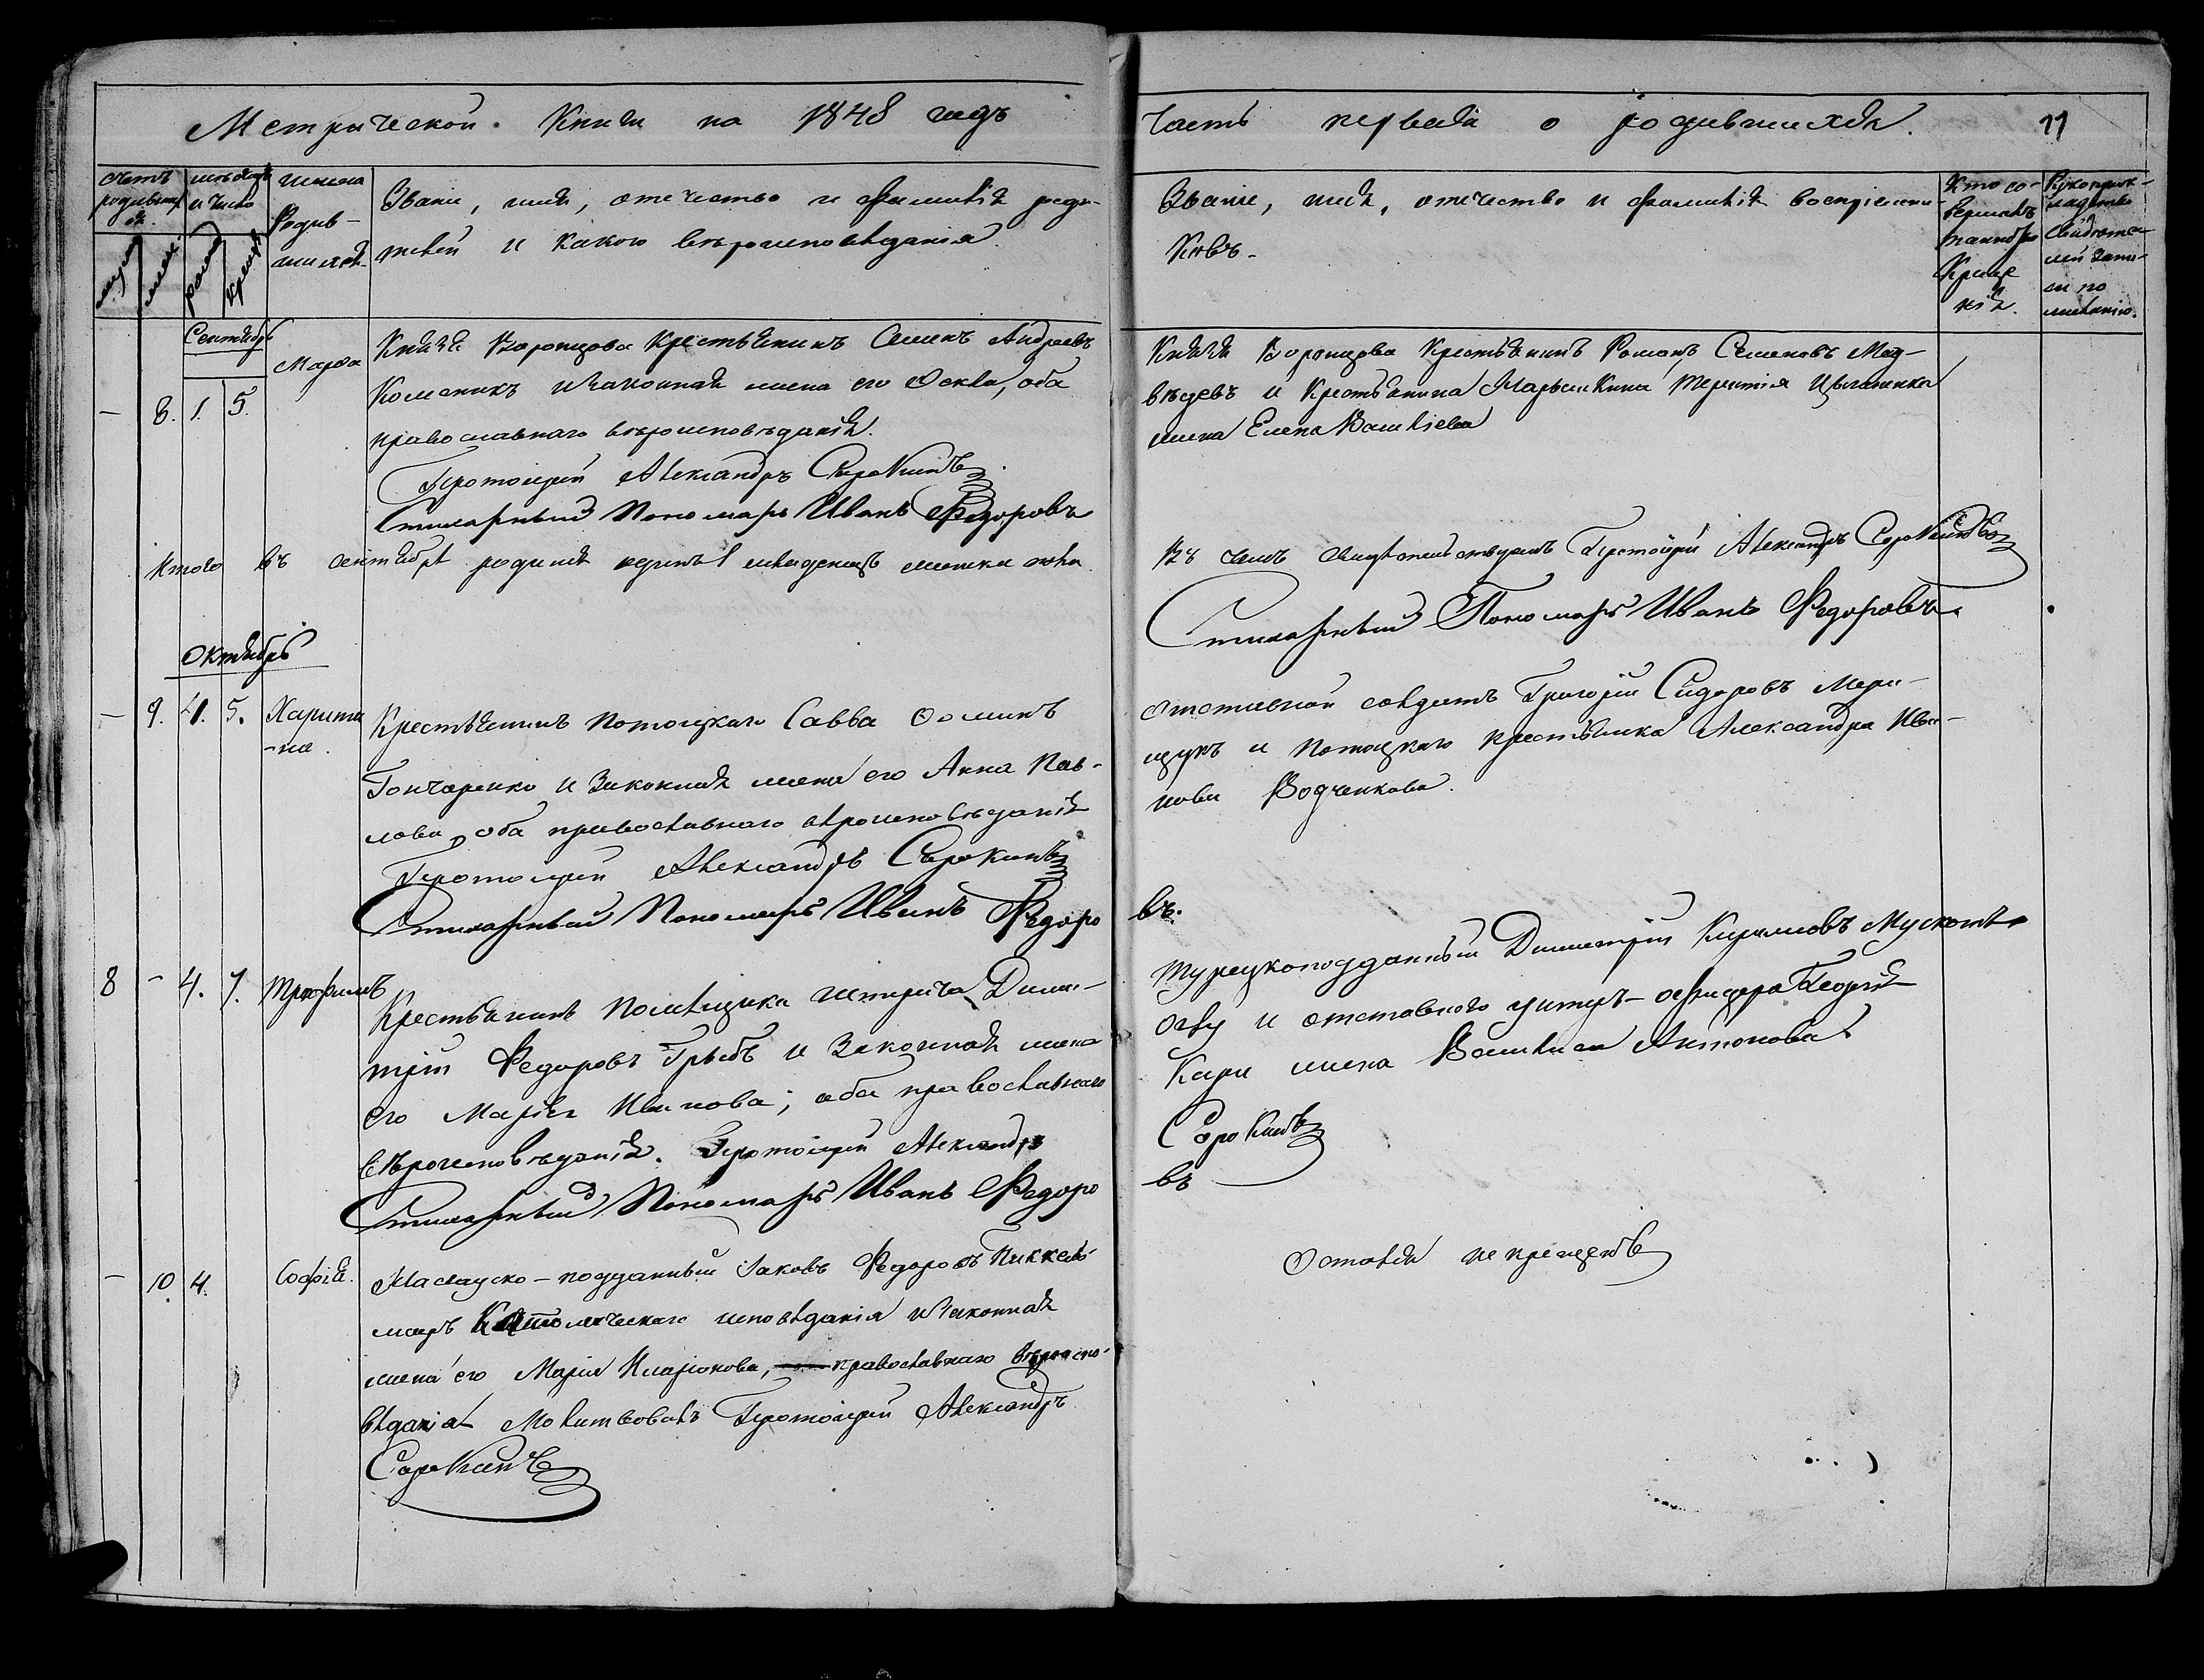 Метрической Книги на 1848 годъ
Часть первая о родившихся.
11
счетъ родившихся
мѣсяцъ и число
Имена Родив-
шихся
Званіе, имя, отечество и фамилія роди-
телей и какого вѣроисповѣданія.
Званіе, имя, отечество и фамилія воспріемни-
ковъ.
Кто со-
вершалъ
таинство
Креще
нія.
Рукоприк-
ладство
свидѣте-
лей запи-
си по
желанію.
Сентябрь
- 8. 1. 5. Марфа
Князя Воронцова Крестьянинъ Семенъ Андреевъ
и законная жена его Фекла, оба
православнаго вѣроисповѣданія.
Протоіерей Александръ Сорокинъ
Стихарный Пономарь Иванъ Федоровъ
Князя Воронцова Крестьянинъ Романъ Семеновъ Мед-
вѣдевъ и Крестьянина Нарышкина Терентія Цыганенка
жена Елена Васильева
Итого въ сентябрѣ родился одинъ 1 младенецъ женска пола
Въ чемъ свидѣтельствуемъ Протоіерей Александръ Сорокинъ
Стихарный Пономарь Иванъ Федоровъ
Октябрь
- 9. 4. 5. Харити
-на.
Крестьянинъ Потоцкаго Савва Фоминъ
Гончаренко и Законная жена его Анна Пав-
лова, оба православнаго вѣроисповѣданія
Протоіерей Александръ Сорокинъ
Стихарный Пономарь Иванъ Федоро
въ.
отставной солдатъ Григорій Сидоровъ
и Потоцкаго крестьянка Александра Ива-
нова Водченкова.
8 - 4. 7. Трофимъ
Крестьянинъ Помѣщика Дими-
трій Федоровъ Грыбъ и Законная жена
его Марія Иванова; оба православнаго
вѣроисповѣданія. Протоіерей Александръ
Стихарный Пономарь Иванъ Федоро
Турецкоподданный Димитрій Кириловъ
и отставного унтеръ-офицера Георгія
Кари жена Василиса Антонова
Сорокинъ
въ
- 10. 4. Софія.
Нассауско-подданный Іаковъ Федоровъ
Католическаго исповѣданія и Законная
жена его Марія Иларіонова, православнаго вѣроиспо-
вѣданія Молитвовалъ Протоіерей Александръ
Сорокинъ
Остался не крещенъ